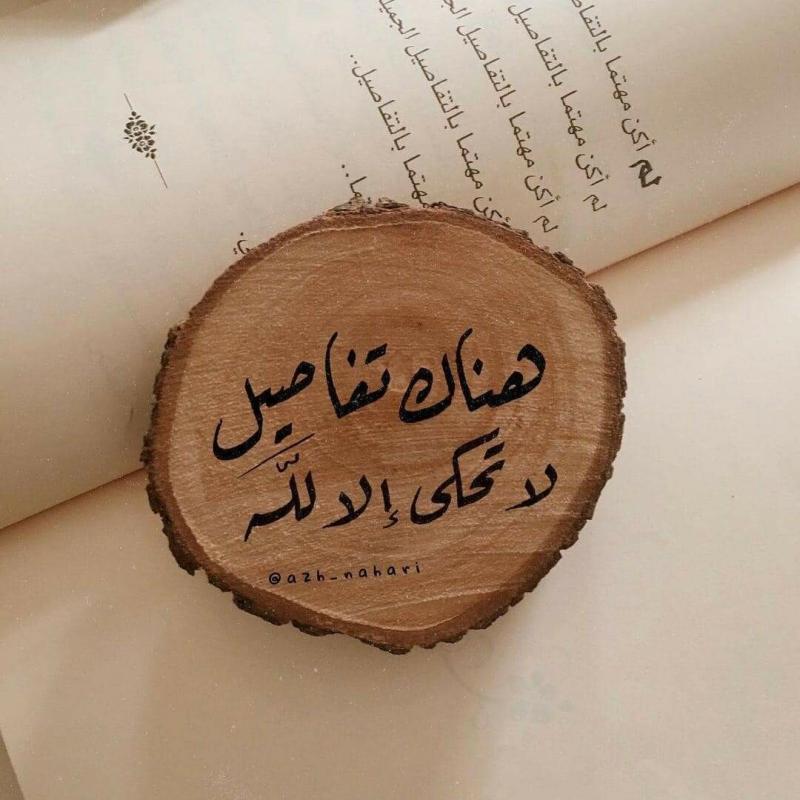 لم أكن مهتما بالتفاصيل
لم أكن مهتما بالتفاصيل
لم أكن مهتما بالتفاصيل
أكن مهتما بالتفاصيل الجميلة
مهتما بالتفاصيل..
هناك تفاصيل
لا تحكى إلا للّه
@azh_nahari